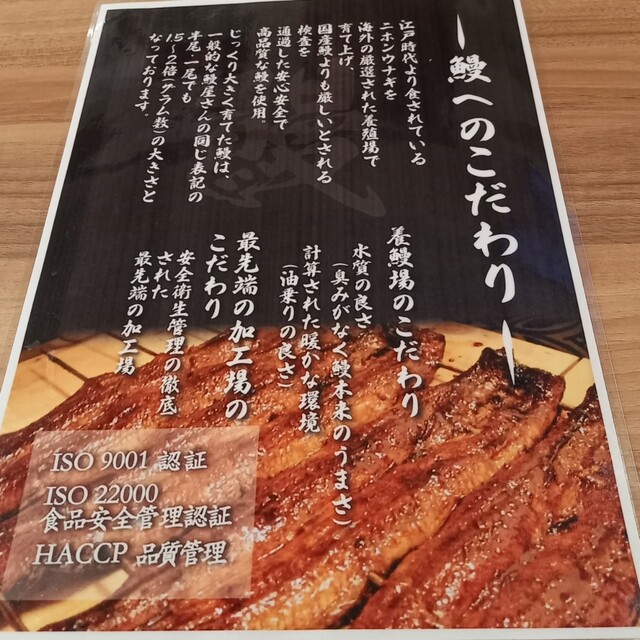 鰻へのこだわり
江戸時代より食されている
ニホンウナギを
海外の厳選された養殖場で
育て上げ
国産鰻よりも厳しいとされる
検査を
通過した安心安全で
高品質な鰻を使用。
じっくり大きく育てた鰻は、
一般的な鰻屋さんの同じ表記の
半尾・一尾でも
1.5〜2倍(グラム数)の大きさと
なっております。
養鰻場のこだわり
水質の良さ
(臭みがなく鰻本来のうまさ)
計算された暖かな環境
(油乗りの良さ)
最先端の加工場の
こだわり
安全衛生管理の徹底
された
最先端の加工場
ISO 9001 認証
ISO 22000
食品安全管理認証
HACCP 品質管理
鰻